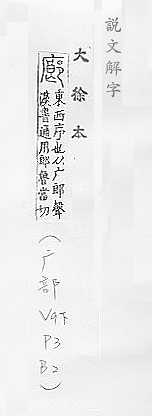 說文解字
大徐本
廊
東西序也从广郎聲
漢書通用郎魯當切
(广部V9下P3B2)